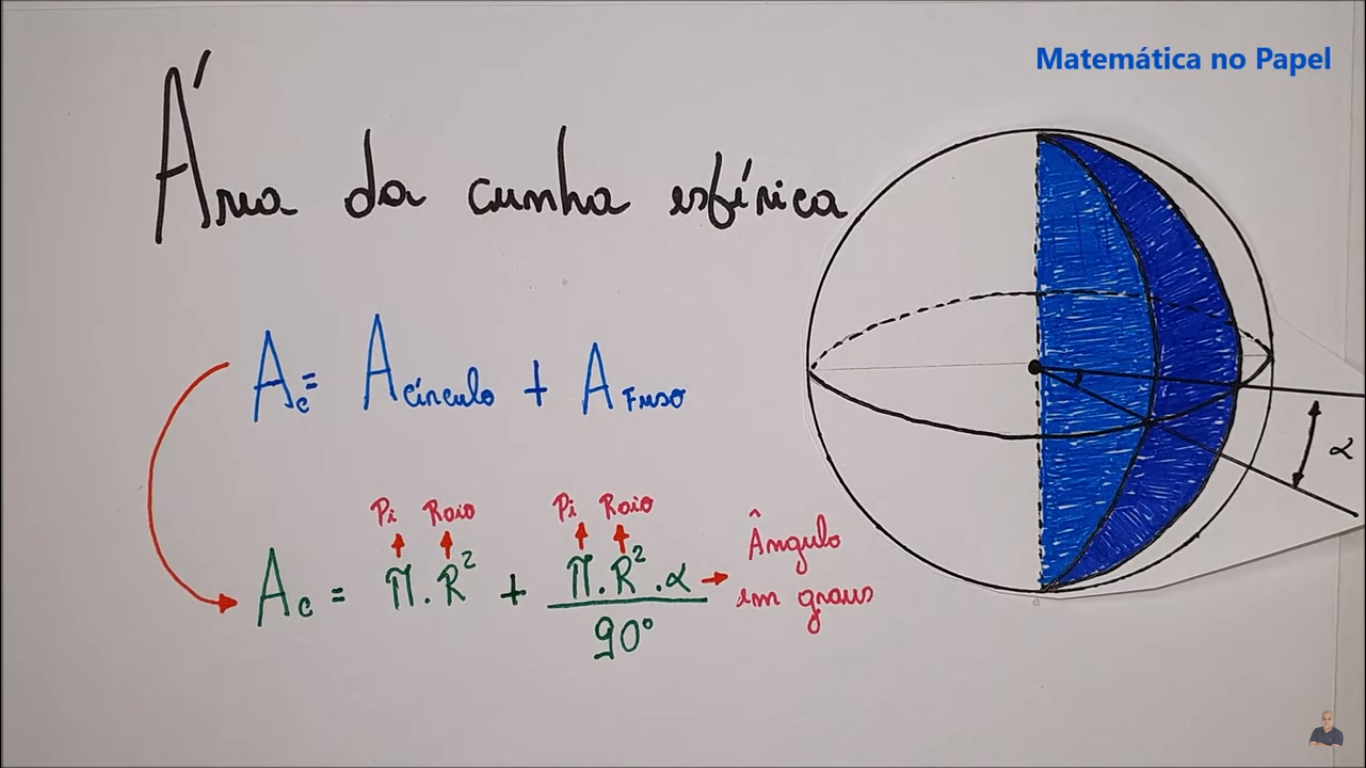 Matemática no Papel
Área da cunha esférica
Ac = Acírculo + AFuso
Pi Raio Pi Raio
Ac = π.R² + π.R².α / 90°
Ângulo
em graus
α